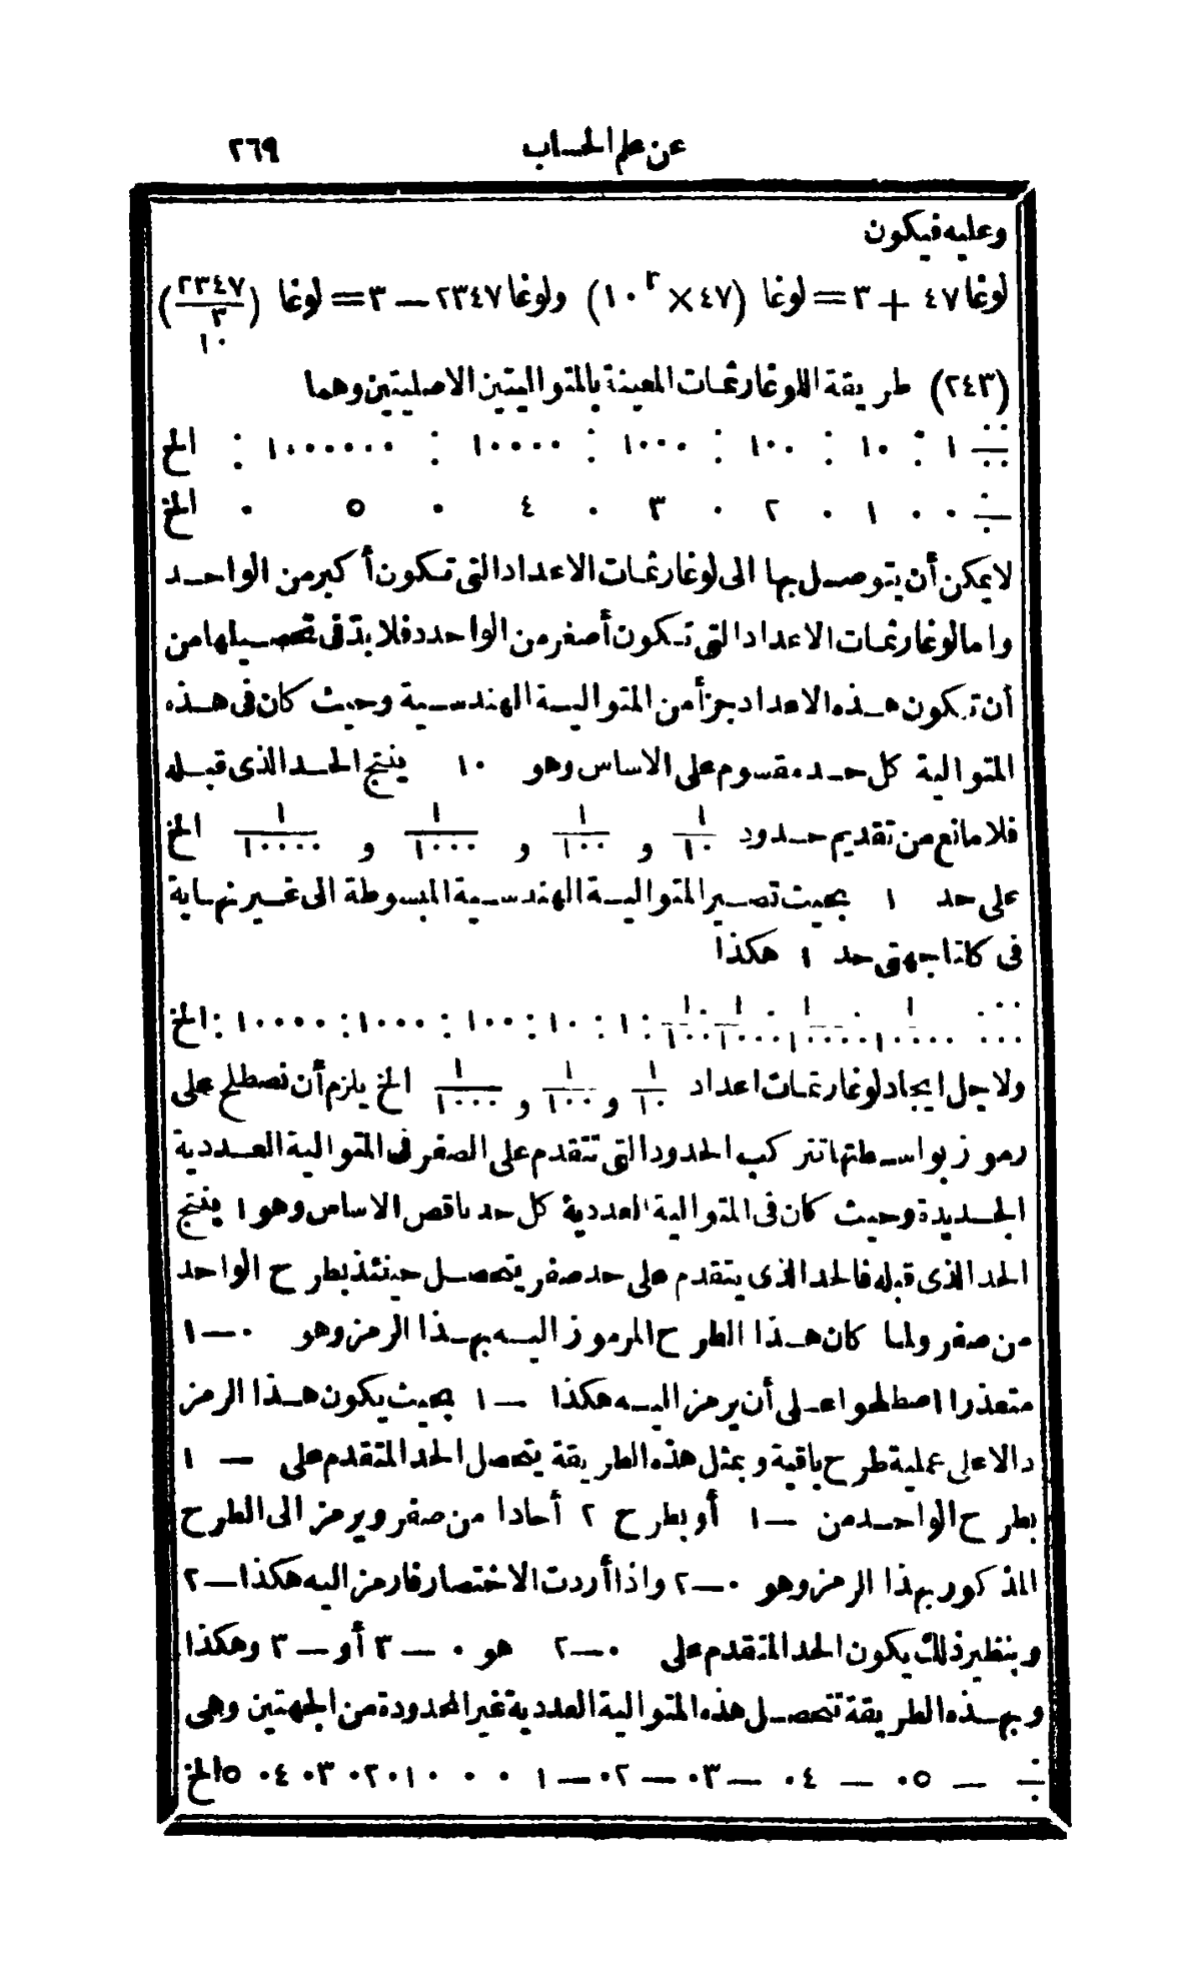 عن علم الحساب ٢٦٩
وعليه فيكون
لوغا ٤٧ + ٣ = لوغا (٤٧ × ١٠^٣) ولوغا ٢٣٤٧ — ٣ = لوغا (٢٣٤٧/١٠^٣)
(٢٤٣) طريقة اللوغارتمات المعينة بالمتواليتين الاصليتين وهما
∺ ١ : ١٠ : ١٠٠ : ١٠٠٠ : ١٠٠٠٠ : ١٠٠٠٠٠٠ : الخ
÷ ٠ . ١ . ٢ . ٣ . ٤ . ٥ . الخ
لا يمكن أن يتوصل بها الى لوغارثمات الاعداد التى تكون أكبر من الواحد
واما لوغارثمات الاعداد التى تكون أصغر من الواحد فلا بدّ فى تحصيلها من
أن تكون هذه الاعداد جزأ من المتوالية الهندسية وحيث كان فى هذه
المتوالية كل حد مقسوم على الاساس وهو ١٠ ينتج الحد الذى قبله
فلا مانع من تقديم حدود ١/١٠ و ١/١٠٠ و ١/١٠٠٠ و ١/١٠٠٠٠ الخ
على حد ١ بحيث تصير المتوالية الهندسية المبسوطة الى غير نهاية
فى كلتا جهتى حد ١ هكذا
... ١/١٠٠٠٠ : ١/١٠٠٠ : ١/١٠٠ : ١/١٠ : ١ : ١٠ : ١٠٠ : ١٠٠٠ : ١٠٠٠٠ : الخ
ولاجل ايجاد لوغارتمات اعداد ١/١٠ و ١/١٠٠ و ١/١٠٠٠ الخ يلزم أن نصطلح على
رموز بواسطتها تتركب الحدود التى تتقدم على الصفر فى المتوالية العددية
الجديدة وحيث كان فى المتوالية العددية كل حد ناقص الاساس وهو ١ ينتج
الحد الذى قبله فالحد الذى يتقدم على حد صفر يتحصل حينئذ بطرح الواحد
من صفر ولما كان هذا الطرح المرموز اليه بهذا الرمز وهو ٠—١
متعذرا اصطلحوا على أن يرمز اليه هكذا —١ بحيث يكون هذا الرمز
دالا على عملية طرح باقية وبمثل هذه الطريقة يتحصل الحد المتقدم على —١
بطرح الواحد من —١ أو بطرح ٢ أحادا من صفر ويرمز الى الطرح
المذكور بهذا الرمز وهو ٠—٢ واذا أردت الاختصار فارمز اليه هكذا —٢
وبنظير ذلك يكون الحد المتقدم على ٠—٢ هو ٠—٣ أو —٣ وهكذا
وبهذه الطريقة تتحصل هذه المتوالية العددية غير المحدودة من الجهتين وهى
÷ — ٥ . — ٤ . — ٣ . — ٢ . — ١ . ٠ . ١ . ٢ . ٣ . ٤ . ٥ الخ